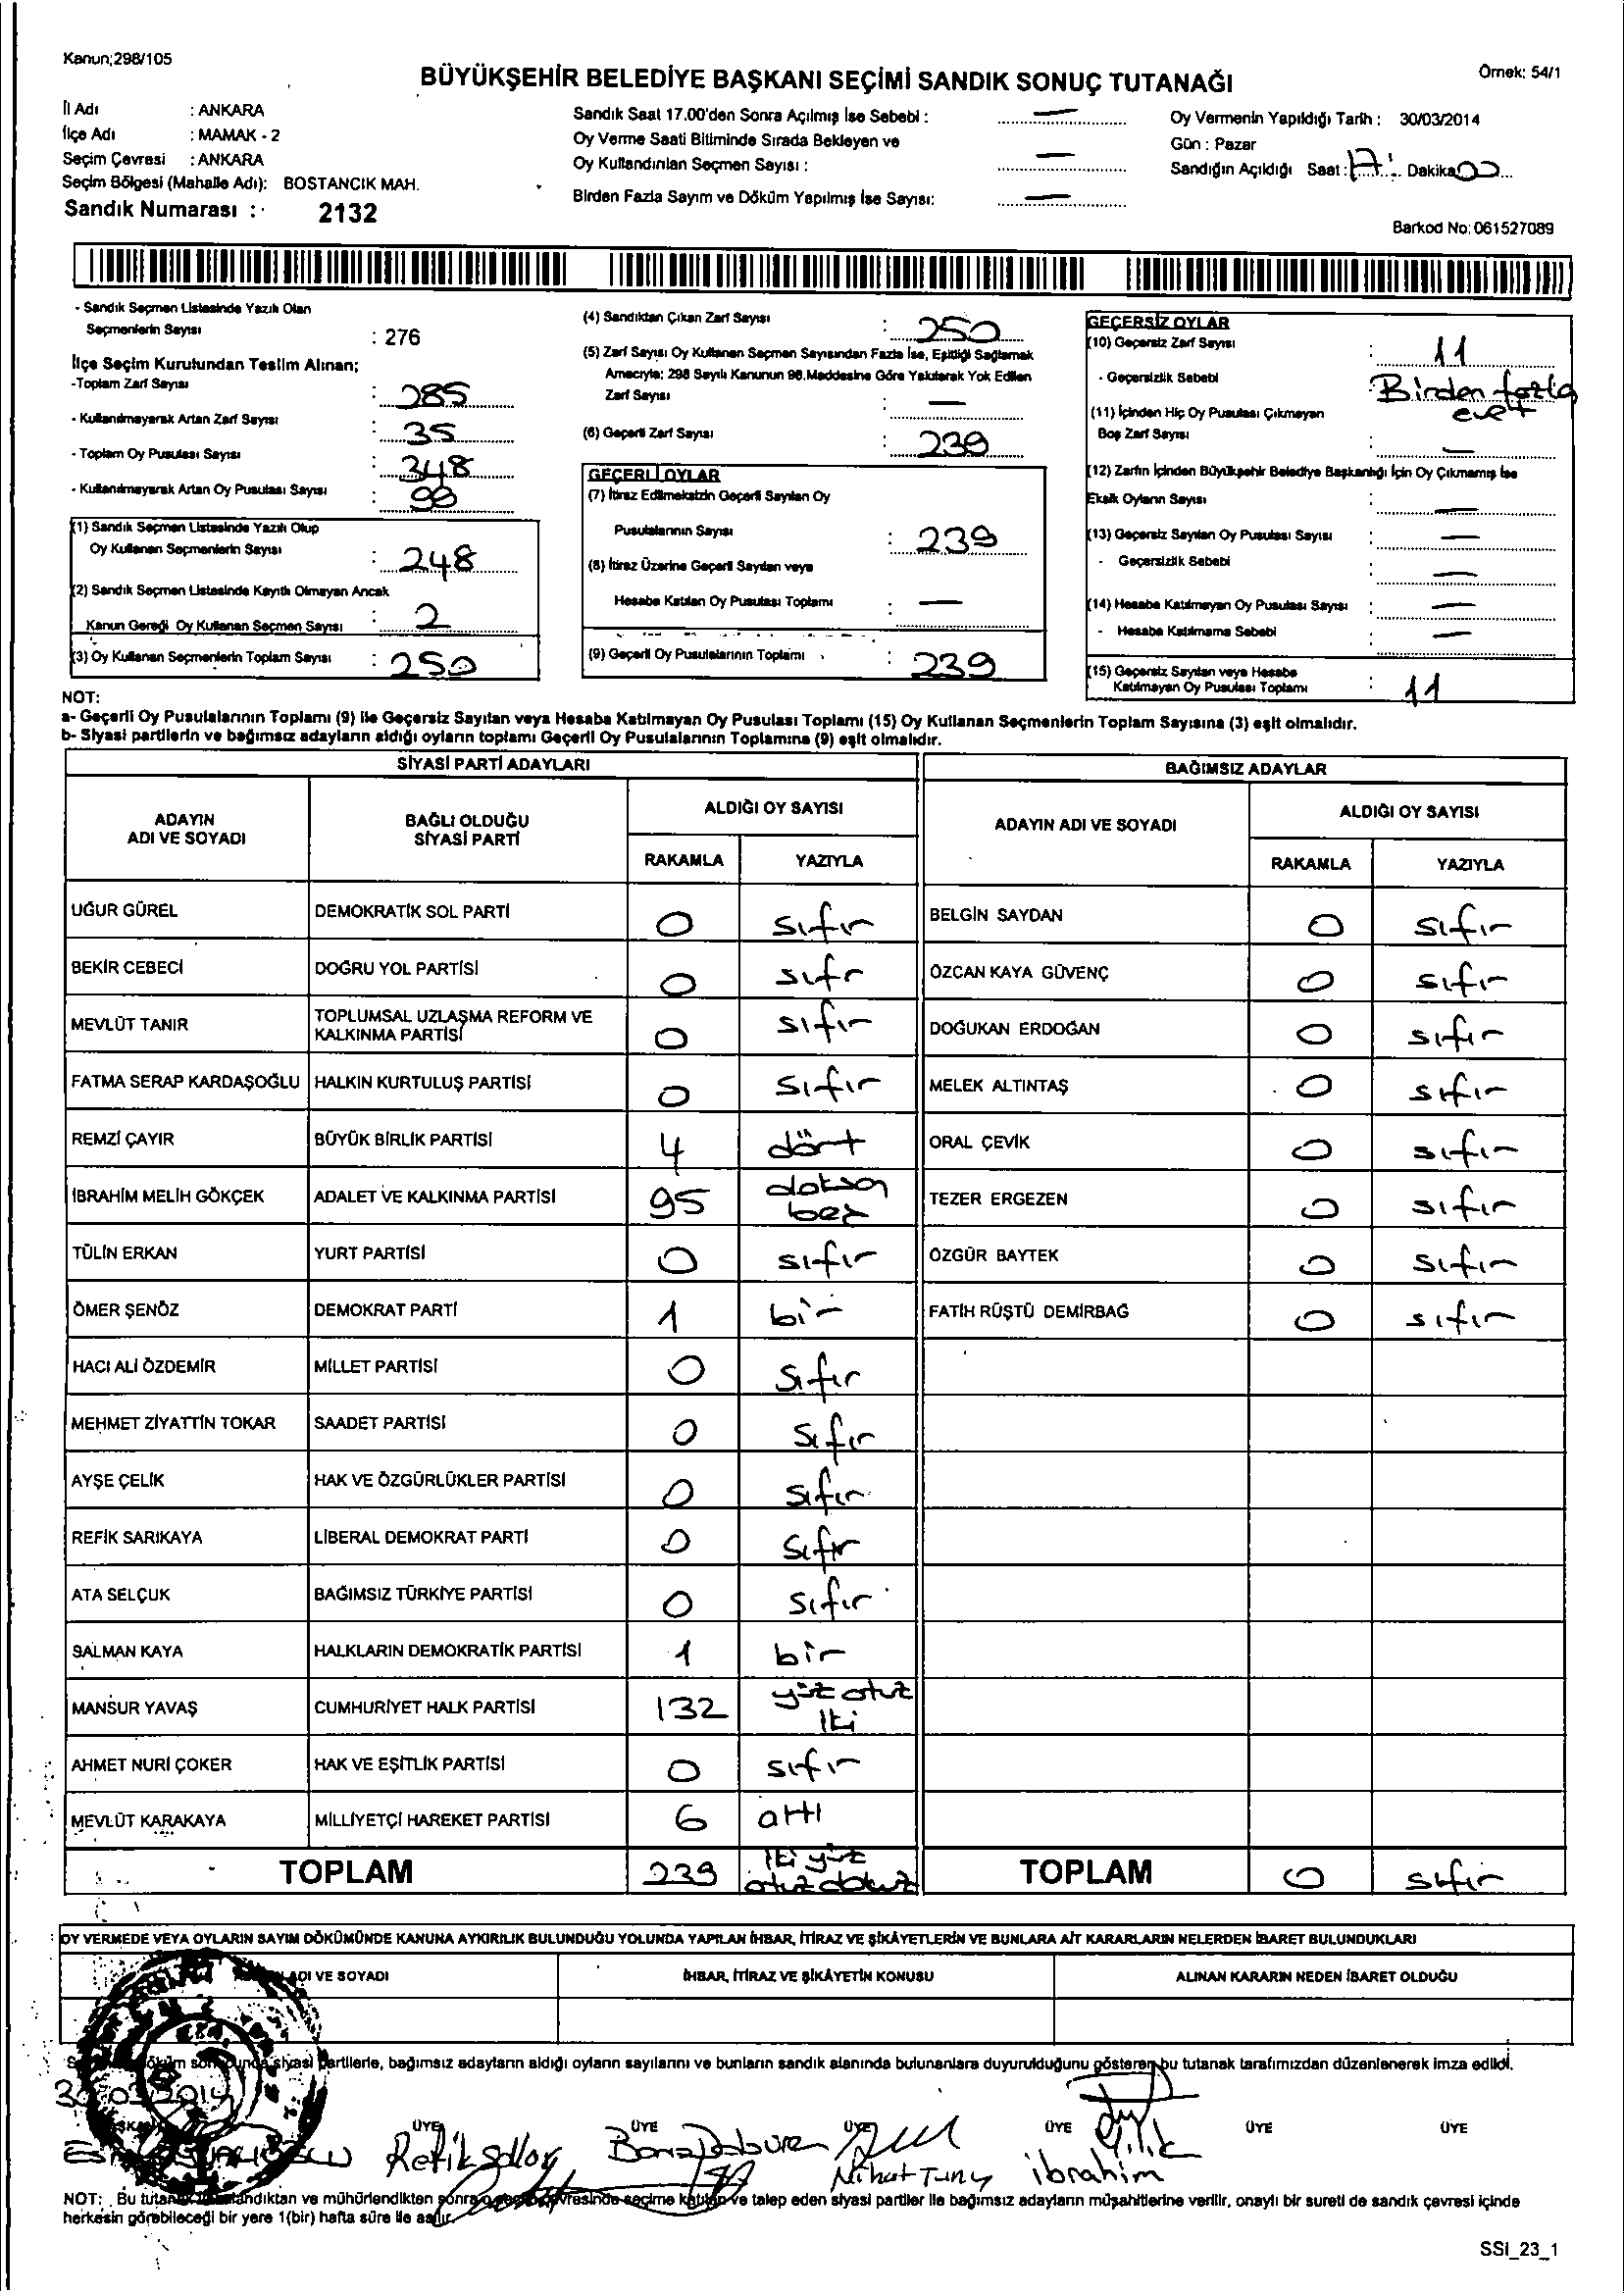 Kanun;298/105
BÜYÜKŞEHİR BELEDİYE BAŞKANI SEÇİMİ SANDIK SONUÇ TUTANAĞI
Örnek: 54/1
İl Adı : ANKARA
İlçe Adı : MAMAK - 2
Seçim Çevresi : ANKARA
Seçim Bölgesi (Mahalle Adı): BOSTANCIK MAH.
Sandık Numarası : 2132
Sandık Saat 17.00'den Sonra Açılmış İse Sebebi : —
Oy Verme Saati Bitiminde Sırada Bekleyen ve
Oy Kullandırılan Seçmen Sayısı : —
Birden Fazla Sayım ve Döküm Yapılmış İse Sayısı: —
Oy Vermenin Yapıldığı Tarih : 30/03/2014
Gün : Pazar
Sandığın Açıldığı Saat : 17 Dakika 00
Barkod No: 061527089
- Sandık Seçmen Listesinde Yazılı Olan
Seçmenlerin Sayısı : 276
İlçe Seçim Kurulundan Teslim Alınan;
-Toplam Zarf Sayısı : 285
- Kullanılmayarak Artan Zarf Sayısı : 35
- Toplam Oy Pusulası Sayısı : 348
- Kullanılmayarak Artan Oy Pusulası Sayısı : 98
(1) Sandık Seçmen Listesinde Yazılı Olup
Oy Kullanan Seçmenlerin Sayısı : 248
(2) Sandık Seçmen Listesinde Kayıtlı Olmayan Ancak
Kanun Gereği Oy Kullanan Seçmen Sayısı : 2
(3) Oy Kullanan Seçmenlerin Toplam Sayısı : 250
(4) Sandıktan Çıkan Zarf Sayısı : 250
(5) Zarf Sayısı Oy Kullanan Seçmen Sayısından Fazla İse, Eşitliği Sağlamak
Amacıyla; 298 Sayılı Kanunun 98.Maddesine Göre Yakılarak Yok Edilen
Zarf Sayısı : —
(6) Geçerli Zarf Sayısı : 239
GEÇERLİ OYLAR
(7) İtiraz Edilmeksizin Geçerli Sayılan Oy
Pusulalarının Sayısı : 239
(8) İtiraz Üzerine Geçerli Sayılan veya
Hesaba Katılan Oy Pusulası Toplamı : —
(9) Geçerli Oy Pusulalarının Toplamı : 239
GEÇERSİZ OYLAR
(10) Geçersiz Zarf Sayısı : 11
- Geçersizlik Sebebi : Birden fazla
evet
(11) İçinden Hiç Oy Pusulası Çıkmayan
Boş Zarf Sayısı : —
(12) Zarfın İçinden Büyükşehir Belediye Başkanlığı İçin Oy Çıkmamış İse
Eksik Oyların Sayısı : —
(13) Geçersiz Sayılan Oy Pusulası Sayısı : —
- Geçersizlik Sebebi : —
(14) Hesaba Katılmayan Oy Pusulası Sayısı : —
- Hesaba Katılmama Sebebi : —
(15) Geçersiz Sayılan veya Hesaba
Katılmayan Oy Pusulası Toplamı : 11
NOT:
a- Geçerli Oy Pusulalarının Toplamı (9) ile Geçersiz Sayılan veya Hesaba Katılmayan Oy Pusulası Toplamı (15) Oy Kullanan Seçmenlerin Toplam Sayısına (3) eşit olmalıdır.
b- Siyasi partilerin ve bağımsız adayların aldığı oyların toplamı Geçerli Oy Pusulalarının Toplamına (9) eşit olmalıdır.
SİYASİ PARTİ ADAYLARI
ADAYIN ADI VE SOYADI
BAĞLI OLDUĞU SİYASİ PARTİ
ALDIĞI OY SAYISI
RAKAMLA YAZIYLA
UĞUR GÜREL DEMOKRATİK SOL PARTİ 0 sıfır
BEKİR CEBECİ DOĞRU YOL PARTİSİ 0 sıfr
MEVLÜT TANIR TOPLUMSAL UZLAŞMA REFORM VE KALKINMA PARTİSİ 0 sıfır
FATMA SERAP KARDAŞOĞLU HALKIN KURTULUŞ PARTİSİ 0 sıfır
REMZİ ÇAYIR BÜYÜK BİRLİK PARTİSİ 4 dört
İBRAHİM MELİH GÖKÇEK ADALET VE KALKINMA PARTİSİ 95 doksan beş
TÜLİN ERKAN YURT PARTİSİ 0 sıfır
ÖMER ŞENÖZ DEMOKRAT PARTİ 1 bir
HACI ALİ ÖZDEMİR MİLLET PARTİSİ 0 sıfır
MEHMET ZİYATTİN TOKAR SAADET PARTİSİ 0 sıfır
AYŞE ÇELİK HAK VE ÖZGÜRLÜKLER PARTİSİ 0 sıfır
REFİK SARIKAYA LİBERAL DEMOKRAT PARTİ 0 sıfır
ATA SELÇUK BAĞIMSIZ TÜRKİYE PARTİSİ 0 sıfır
SALMAN KAYA HALKLARIN DEMOKRATİK PARTİSİ 1 bir
MANSUR YAVAŞ CUMHURİYET HALK PARTİSİ 132 yüz otuz iki
AHMET NURİ ÇOKER HAK VE EŞİTLİK PARTİSİ 0 sıfır
MEVLÜT KARAKAYA MİLLİYETÇİ HAREKET PARTİSİ 6 altı
TOPLAM 239 iki yüz otuz dokuz
BAĞIMSIZ ADAYLAR
ADAYIN ADI VE SOYADI
ALDIĞI OY SAYISI
RAKAMLA YAZIYLA
BELGİN SAYDAN 0 sıfır
ÖZCAN KAYA GÜVENÇ 0 sıfır
DOĞUKAN ERDOĞAN 0 sıfır
MELEK ALTINTAŞ 0 sıfır
ORAL ÇEVİK 0 sıfır
TEZER ERGEZEN 0 sıfır
ÖZGÜR BAYTEK 0 sıfır
FATİH RÜŞTÜ DEMİRBAĞ 0 sıfır
TOPLAM 0 sıfır
OY VERMEDE VEYA OYLARIN SAYIM DÖKÜMÜNDE KANUNA AYKIRILIK BULUNDUĞU YOLUNDA YAPILAN İHBAR, İTİRAZ VE ŞİKÂYETLERİN VE BUNLARA AİT KARARLARIN NELERDEN İBARET BULUNDUKLARI
ADI VE SOYADI
İHBAR, İTİRAZ VE ŞİKÂYETİN KONUSU
ALINAN KARARIN NEDEN İBARET OLDUĞU
siyasi partilerle, bağımsız adayların aldığı oyların sayılarını ve bunların sandık alanında bulunanlara duyurulduğunu gösteren bu tutanak tarafımızdan düzenlenerek imza edildi.
30.03.2014
ÜYE ÜYE ÜYE ÜYE ÜYE ÜYE
Refik
Nihat Tunç
ibrahim
NOT: Bu ve mühürlendikten sonra seçime katılan ve talep eden siyasi partiler ile bağımsız adayların müşahitlerine verilir, onaylı bir sureti de sandık çevresi içinde
herkesin görebileceği bir yere 1(bir) hafta süre ile asılır.
SSI_23_1